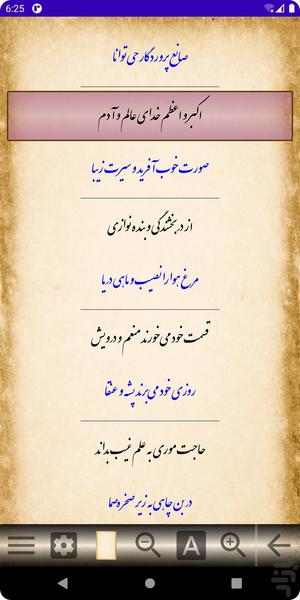 6:25
صانع پروردگار حی توانا
اکبر و اعظم خدای عالم و آدم
صورت خوب آفرید و سیرت زیبا
از در بخشندگی و بنده نوازی
مرغ هوا را نصیب و ماهی دریا
قسمت خود می خورند منعم و درویش
روزی خود می برند پشه و عنقا
حاجت موری به علم غیب بداند
در بن چاهی به زیر صخره صما
A
بازار